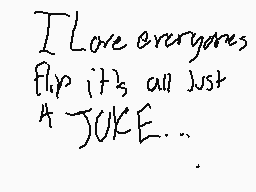 I Love everyones
flip it's all Just
A JOKE...